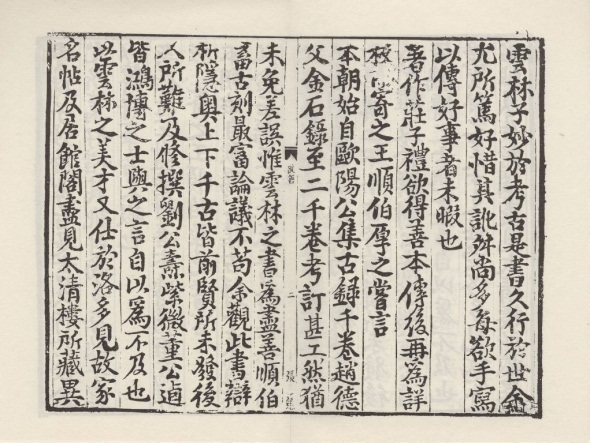 雲林子妙於考古昰書久行於世余
尤所篤好惜其訛舛尚多每欲手寫
以傳好事者未暇也
著作莊子禮欲得善本傳後再為詳
校寄之王順伯厚之嘗言
本朝始自歐陽公集古録千卷趙德
父金石録至二千卷考訂甚工然猶
二
未免差誤惟雲林之書為盡善順伯
畜古刻最富論議不苟余觀此書辯
析隱奥上下千古皆前賢所未發後
人所難及修撰劉公燾紫微董公逌
皆鴻博之士與之言自以為不及也
以雲林之美才又仕於洛多見故家
名帖及居館閣盡見太清樓所藏異